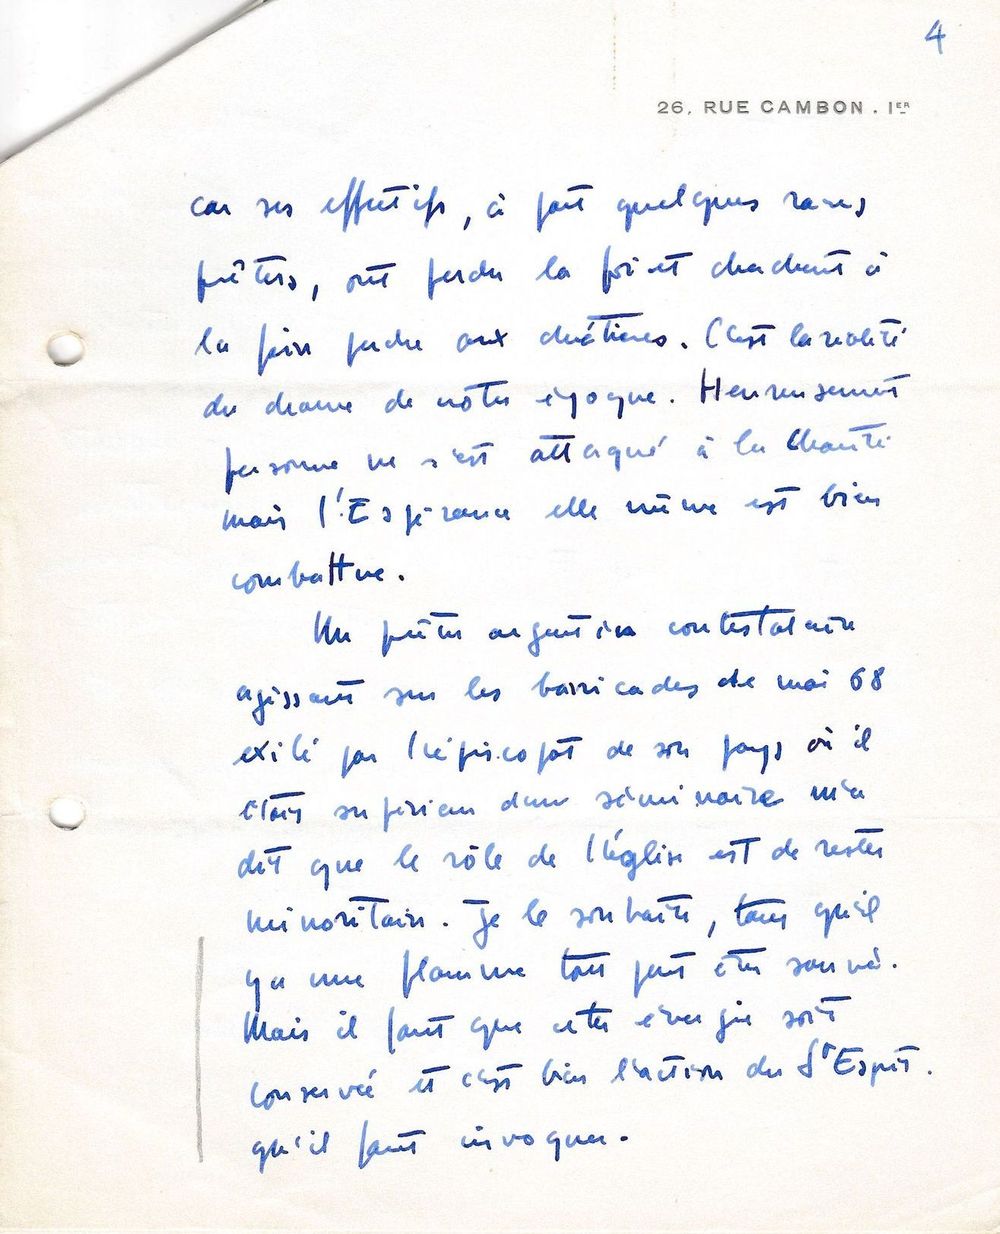 4
26, RUE CAMBON . IER
car ses effectifs, à part quelques rares
prêtres, ont perdu la foi et cherchent à
la faire perdre aux chrétiens. C'est la réalité
du drame de notre époque. Heureusement
personne ne s'est attaqué à la Charité
mais l'Espérance elle même est bien
combattue.
Un prêtre argentin contestataire
agissant sur les barricades de mai 68
exilé par l'épiscopat de son pays où il
était supérieur d'un séminaire m'a
dit que le rôle de l'église est de rester
minoritaire. Je le souhaite, tant qu'il
y a une flamme tout peut être sauvé.
Mais il faut que cette énergie soit
conservée et c'est bien l'action du St Esprit.
qu'il faut invoquer.